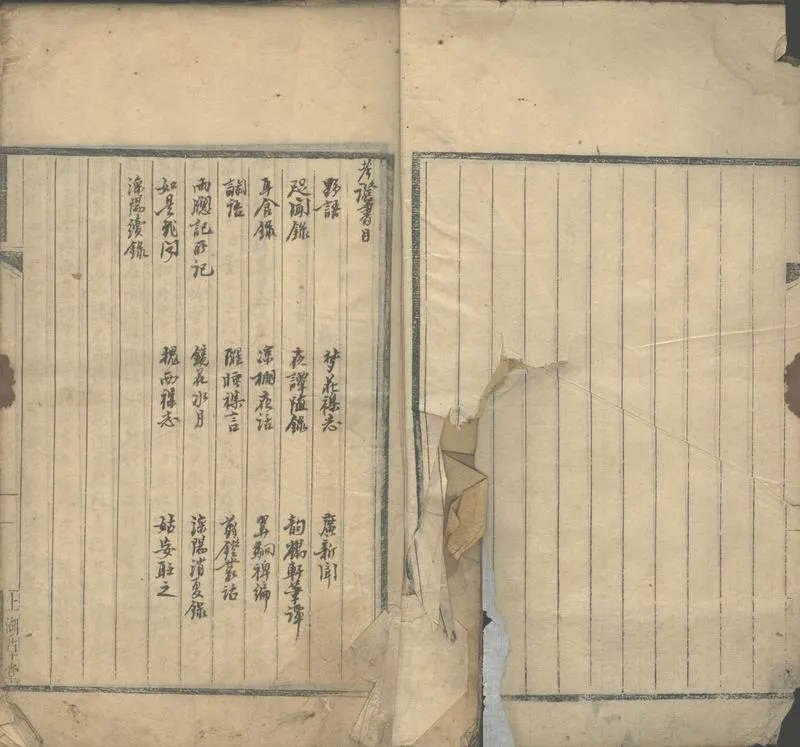 考證書目
野語 夢花襍志 廣新聞
咫聞錄 夜譚隨錄 韵鶴軒筆譚
耳食錄 涼棚夜話 翼駉稗編
醒睡襍言 剪鐙叢話
雨牕記所記 鏡花水月 灤陽消夏錄
如是我聞 槐西襍志 姑妄聽之
灤陽續錄
上湖草堂